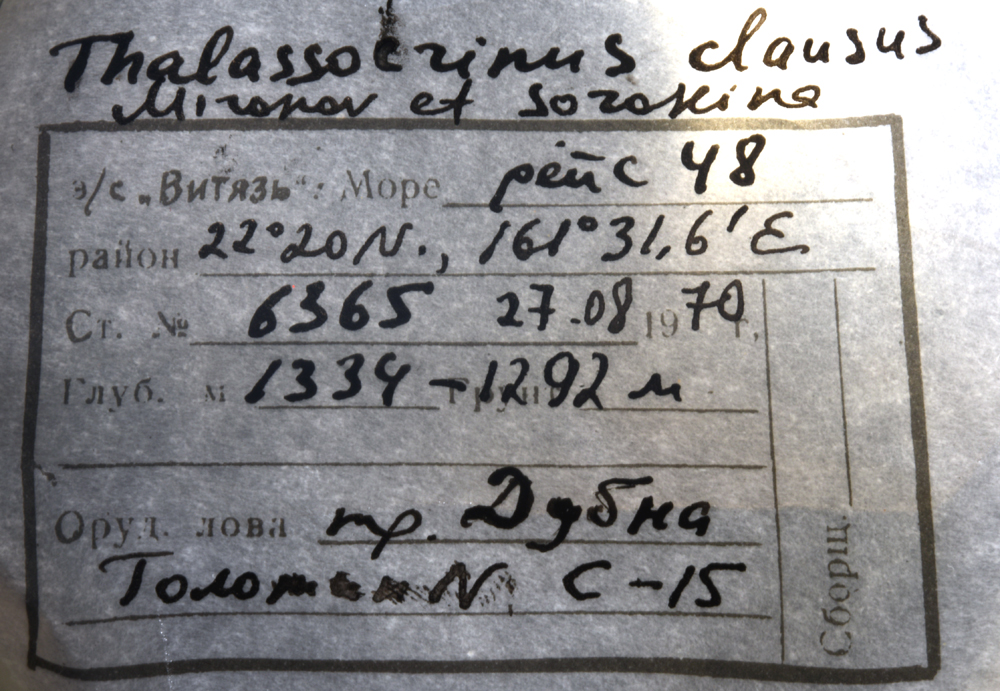 Thalassocrinus clausus
Mironov et Sorokina
э/с „Витязь“: Море рейс 48
район 22°20 N., 161°31,6' E
Ст. № 6365 27.08 1970 г.
Глуб. м 1334 – 1292 м
Оруд. лова тр. Дубна
N C-15
Сборщ.